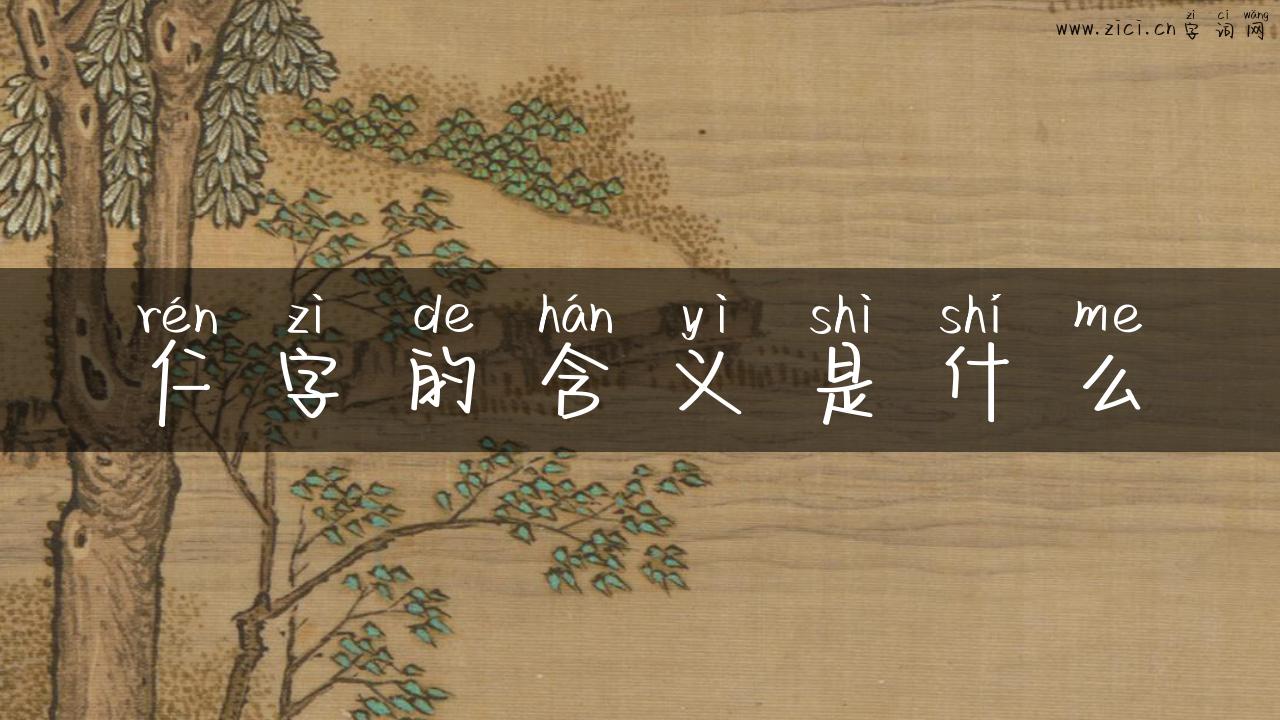 zì cí wǎng
www.zici.cn字词网
rén zì de hán yì shì shí me
仁字的含义是什么